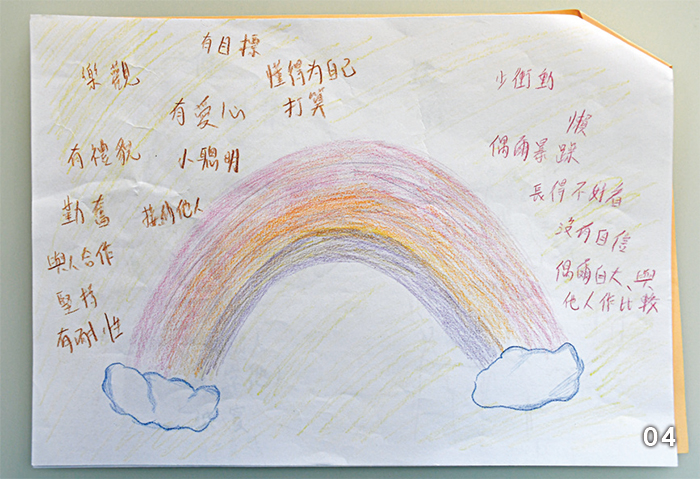 樂觀
有目標
懂得为自己
打算
有愛心
有禮貌
小聰明
勤奮
他人
與人合作
堅持
有耐性
少衝動
懶
偶爾暴躁
長得不好看
沒有自信
偶爾自大、與
他人作比較
04